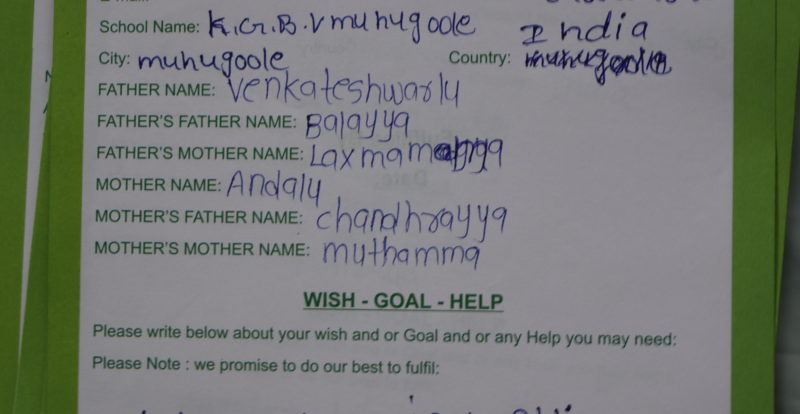 School Name: K.G.B.V muhugoole India
City: muhugoole Country:
FATHER NAME: Venkateshwarly
FATHER'S FATHER NAME: Balayya
FATHER'S MOTHER NAME:
MOTHER NAME: Andaly
MOTHER'S FATHER NAME: chandhrayya
MOTHER'S MOTHER NAME: muthamma
WISH - GOAL - HELP
Please write below about your wish and or Goal and or any Help you may need:
Please Note : we promise to do our best to fulfil: